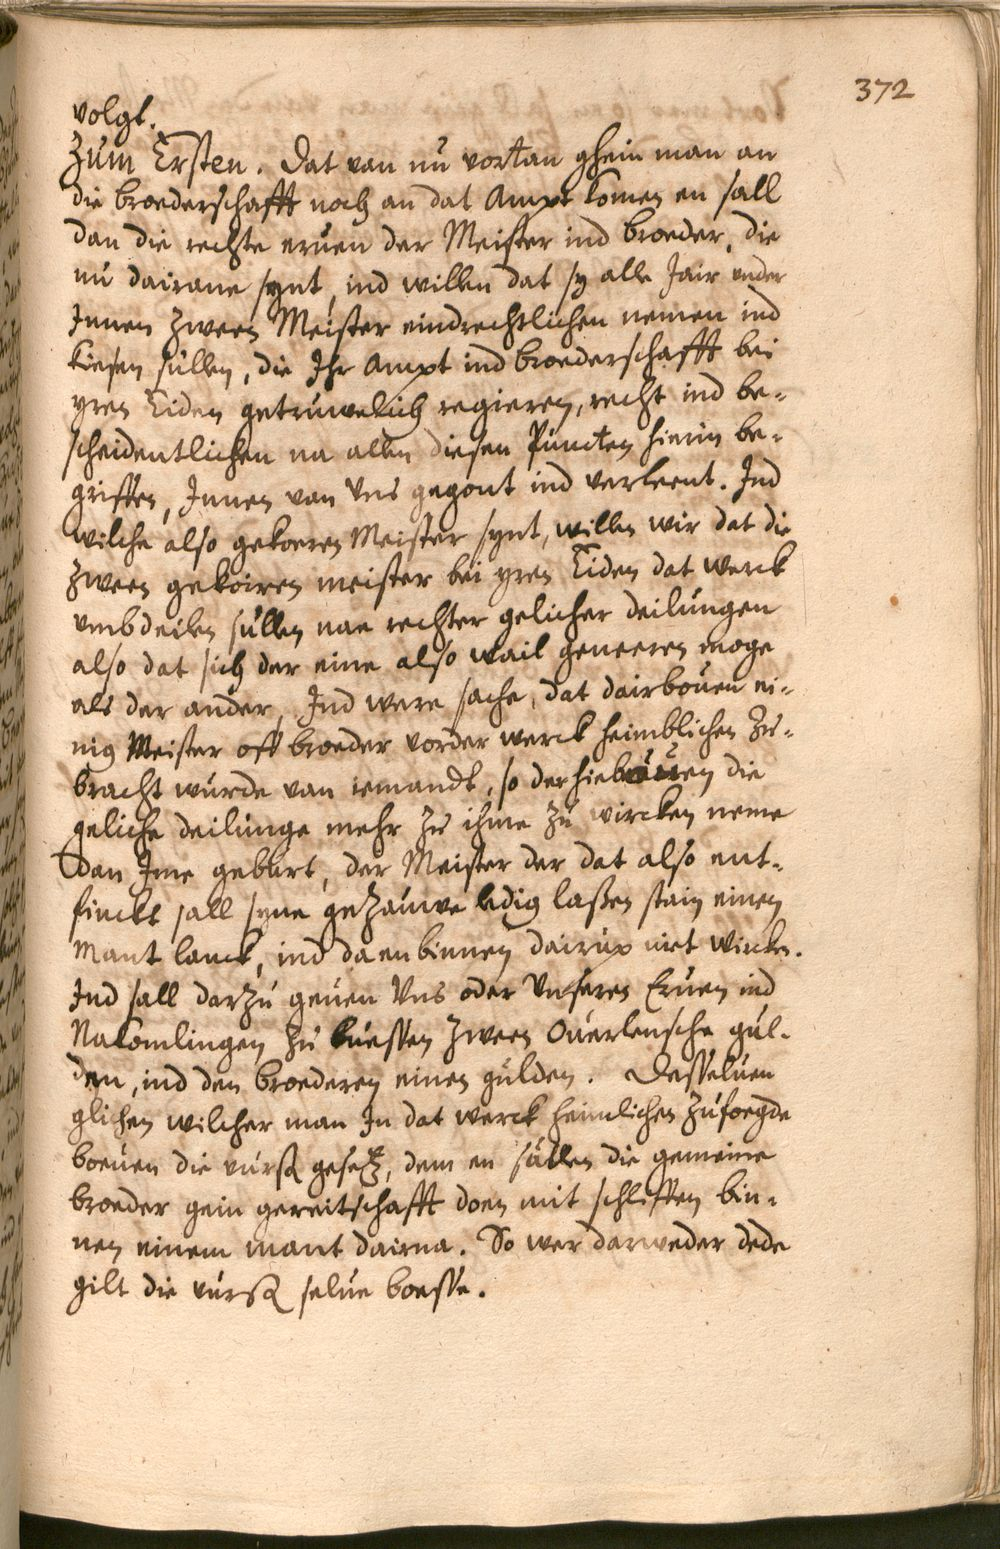 372
volgt.
Zum Ersten. Dat van nu vortan ghein man an
die broederschafft noch an dat Ampt komen en sall
dan die rechte eruen der Meister ind broeder, die
nu dairane synt, ind willen dat sy alle Jair vnder
Jnnen zween Meister eindrechtlichen nemen ind
kiesen sullen, die Jhr Ampt ind broederschafft bei
yren Eiden getruwelich regieren, recht ind be-
scheidentlichen na allen diesen Puncten hierin be-
griffen, Jnnen van Vns gegont ind verleent. Jnd
wilche also gekoeren Meister synt, willen wir dat die
zween gekoiren meister bei yren Eiden dat werck
vmbdeilen sullen nae rechter gelicher deilungen
also dat sich der eine also wail geneeren moge
als der ander, Jnd were sache, dat dairbouen ei-
nig Meister off broeder vorder werck heimblichen zu-
bracht wurde van iemandt, so der hiebouen die
geliche deilunge mehr zu ihme zu wircken neme
dan Jme geburt, der Meister der dat also ent-
finckt sall syne gezauwe ledig laßen stain einen
Mant lanck, ind daenbinnen dairup niet wircken.
Jnd sall darzu geuen Vns oder Vnseren Eruen ind
Nakomlingen zu buessen zween Ouerlensche gul-
den, ind den broederen einen gulden. Desseluen
glichen wilcher man Jn dat werck heimlichen zufoegde
boeuen die vurß gesetz, dem en sullen die gemeine
broeder gein gereitschafft doen mit schliffen bin-
nen einem mant dairna. So wer darweder dede
gilt die vurß selue boesse.